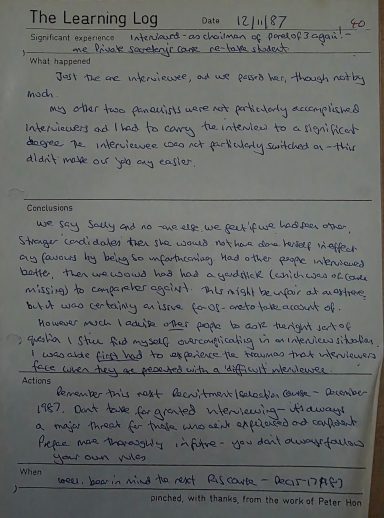 The Learning Log Date 12/11/87 40
Significant experience Interviewed - as chairman of panel of 3 again! -
one Private Secretary's course re-take student
What happened
Just the one interviewee, and we passed her, though not by
much.
My other two panellists were not particularly accomplished
interviewers and I had to carry the interview to a significant
degree. The interviewee was not particularly switched on - this
didn't make our job any easier.
Conclusions
We saw Sally and no-one else. We felt if we had seen other,
stronger candidates then she would not have done herself in effect
any favours by being so unforthcoming. Had other people interviewed
better, then we would have had a yardstick (which was of course
missing) to compare her against. This might be unfair at an extreme,
but it was certainly an issue for us - one to take account of.
However much I advise other people to ask the right sort of
question I still find myself overcomplicating in an interview situation.
I was able first hand to experience the traumas that interviewers
face when they are presented with a difficult interviewee.
Actions
Remember this next Recruitment/Selection course - December
1987. Don't take for granted interviewing - it's always
a major threat for those who aren't experienced and confident
Prepare more thoroughly in future - you don't always follow
your own rules
When
Well, bear in mind the next R/S course - Dec 15-17 1987
pinched, with thanks, from the work of Peter Hon